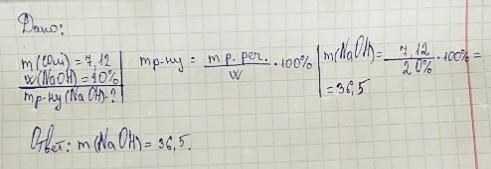 Дано:
m(соли) = 7,12
w(NaOH) = 10%
mр-ну(NaOH)-?
mр-ну = m р. реч. / w · 100%
m(NaOH) = 7,12 / 20% · 100% =
= 36,5
Ответ: m(NaOH) = 36,5.